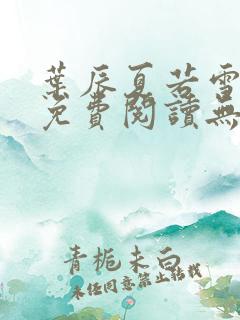 葉辰夏若雪
免費閱讀無
青栀未白
未任同意禁止轉載